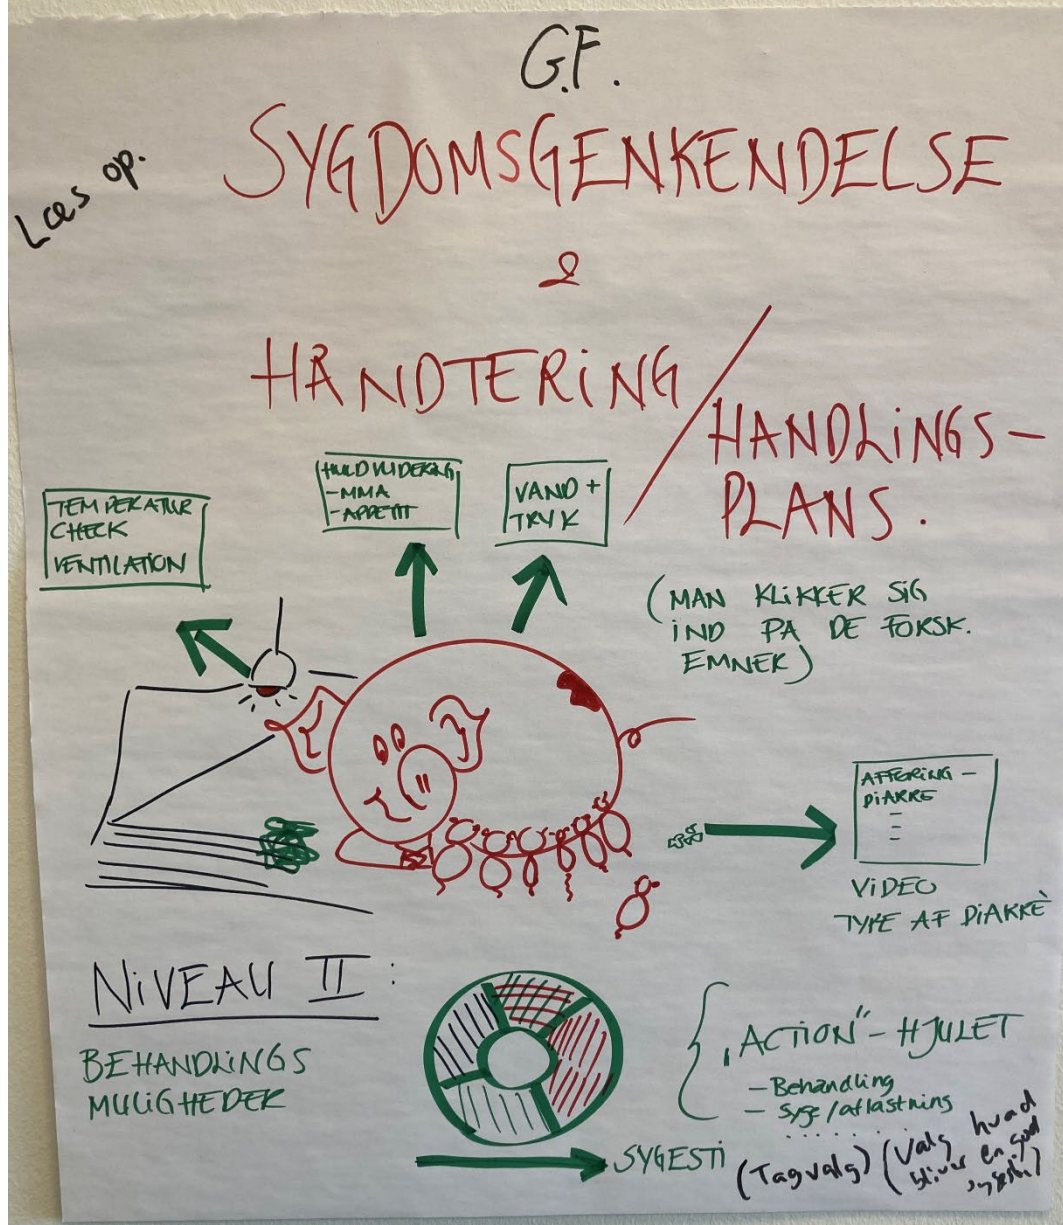 G.F.
Læs op.
SYGDOMSGENKENDELSE
&
HÅNDTERING /
HANDLINGS-
PLANS.
TEMPERATUR
CHECK
VENTILATION
HULDVUDERING
-MMA
-APPETIT
VAND +
TRYK
(MAN KLIKKER SIG
IND PÅ DE FORSK.
EMNER)
AFFØRING -
DIARRE
VIDEO
TYPE AF DIARRÈ
NIVEAU II :
BEHANDLINGS
MULIGHEDER
„ACTION" - HJULET
- Behandling
- Syge/aflastning
SYGESTI
(Tag valg) (Valg hvad
bliver en god
sygesti)